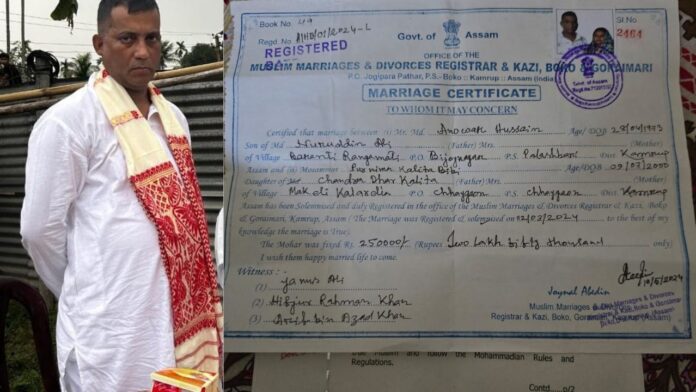 Book No. 49
Govt. of Assam
Sl No
2464
Regd. No
REGISTERED
OFFICE OF THE
MUSLIM MARRIAGES & DIVORCES REGISTRAR & KAZI, BOKO & GORAIMARI
P.O. Jogipara Pathar, P.S.- Boko :: Kamrup :: Assam (India)
MARRIAGE CERTIFICATE
TO WHOM IT MAY CONCERN
Certified that marriage between : Mr. Md Anowar Hussain Age/ DOB 28/04/1973
Son of Md Nuruddin Ali (Father) Mrs. (Mother)
of Village Baranti Rangamati P.O. Bijoynagar P.S. Palashbari Dist Kamrup
Assam and is Mosammat Purnima Kalita Bibi Age/DOB 09/07/2000
Daughter of Md. Chandra Dhar Kalita (Father) Mrs. (Mother)
of Village Makeli Kalardia P.O. Chhaygaon P.S. Chhaygaon Dist Kamrup
Assam has been Solemnised and duly Registered in the office of Muslim Marriages & Divorces Registrar & Kazi, Boko
& Goraimari, Kamrup, Assam ( The Marriage was Registered & solemnised on 12/02/2024 to the best of my
knowledge the marriage is True).
The Mohar was fixed Rs. 250000/- (Rupees Two Lakh fifty thousand only)
I wish them happy married life to come.
Witness :
(1) Janus Ali
(2) Hifjur Rahman Khan
(3) Arif bin Azad Khan
Joynal Abedin
Muslim Marriages & Divorces
Registrar & Kazi, Boko, Goraimari, Kamrup (Assam)
true Muslim and follow the Mohammadian Rules and
Regulations.
Contd..p/2